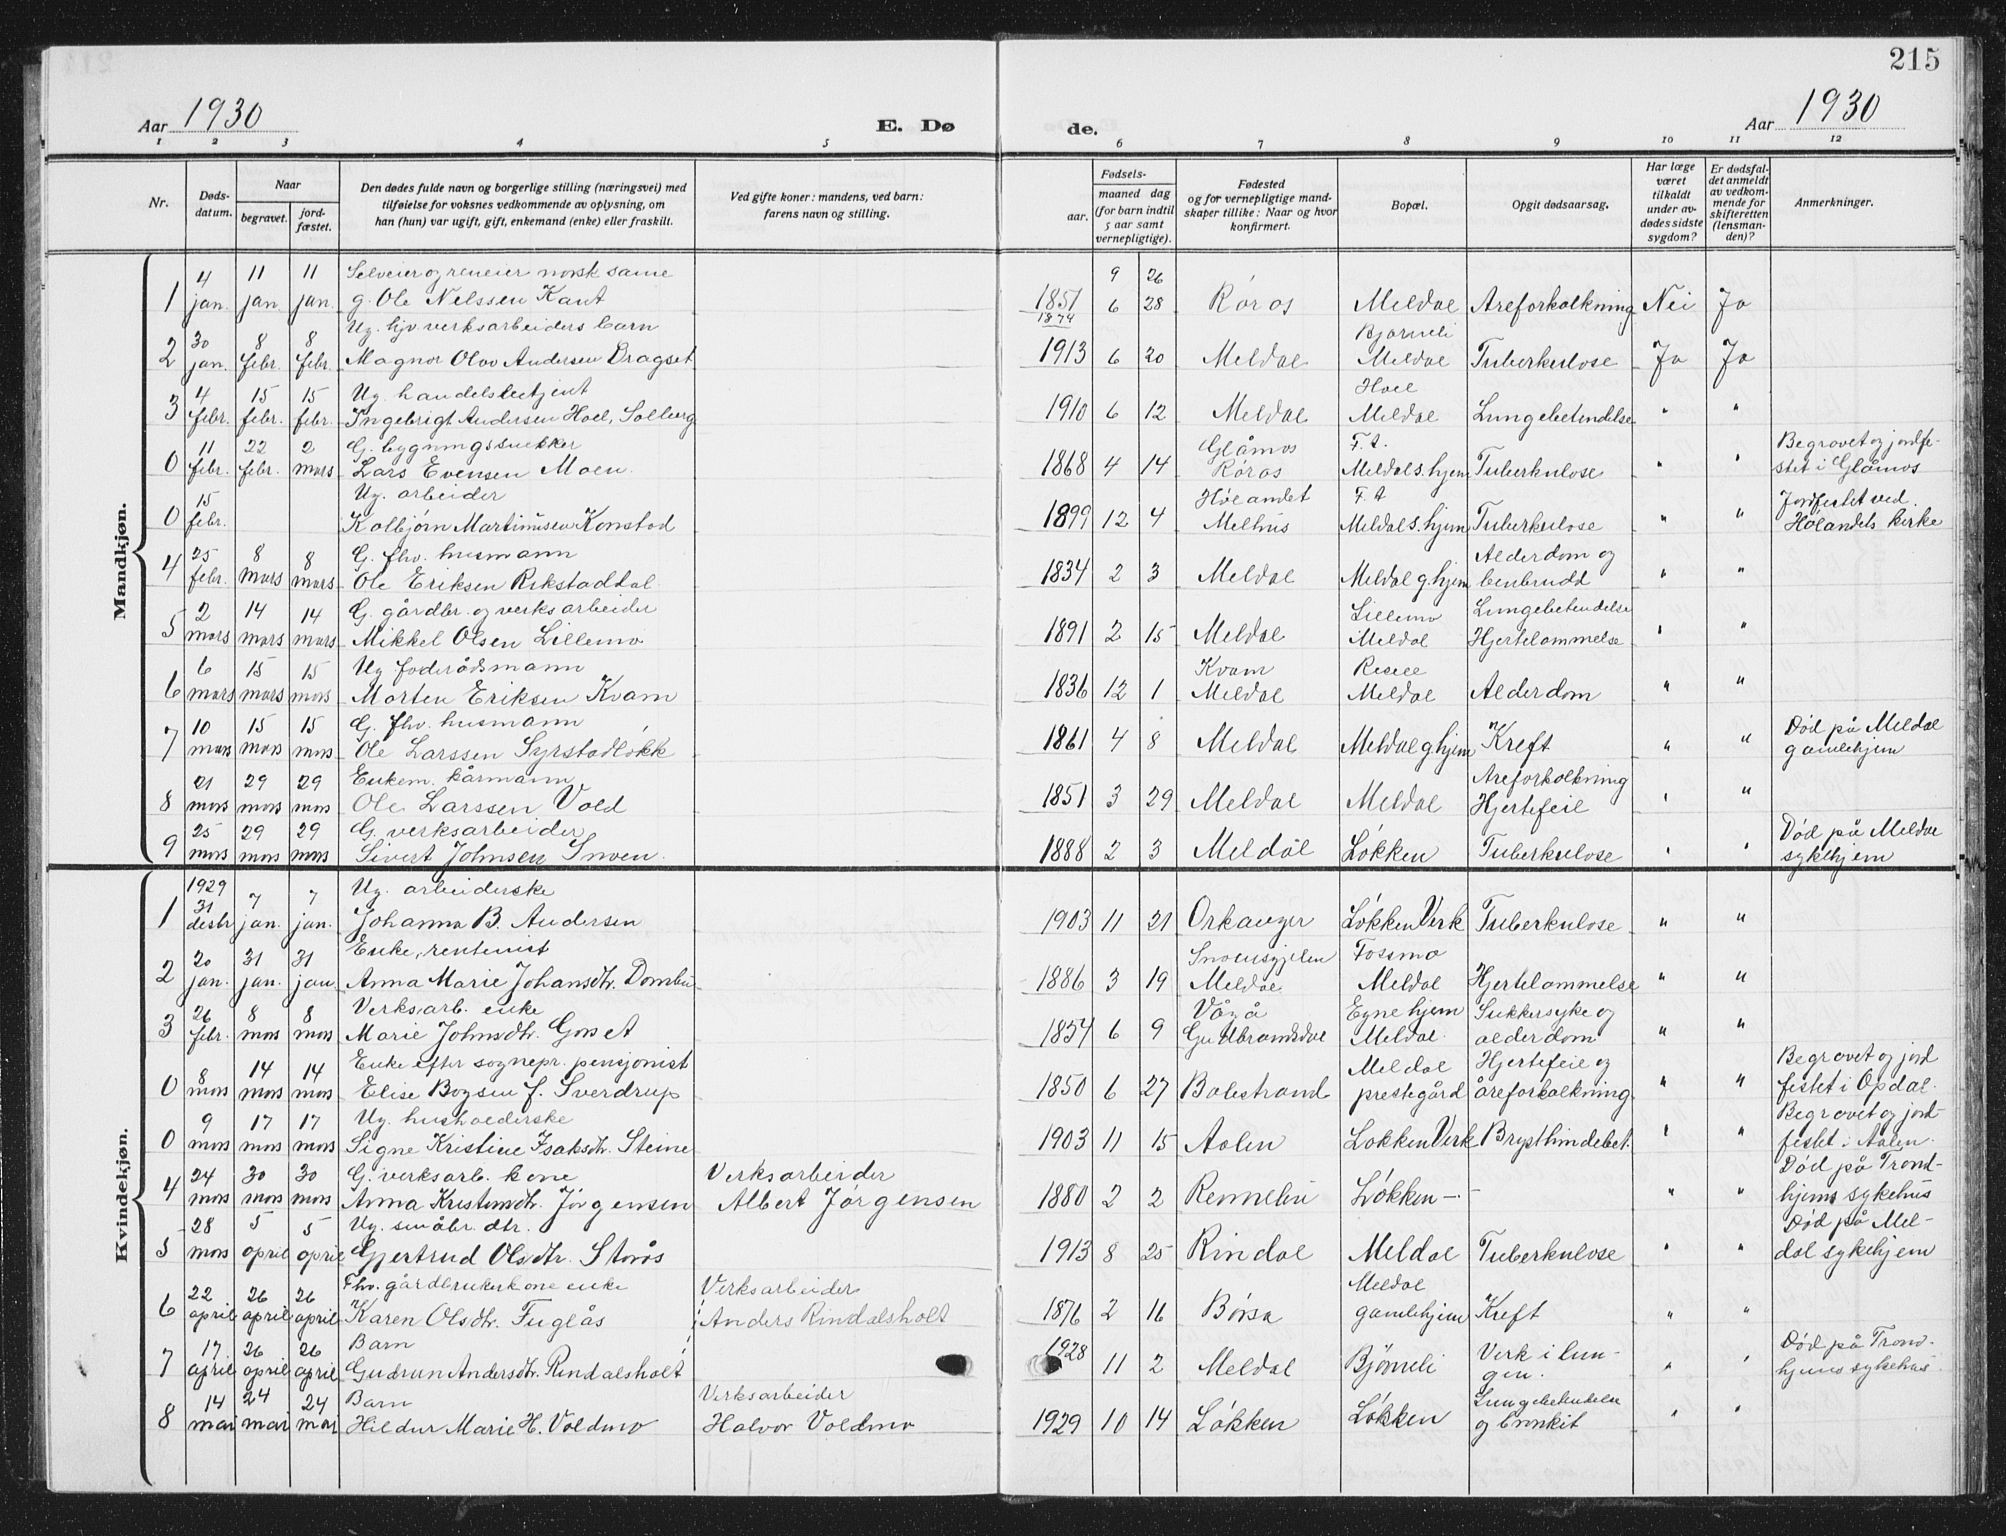 215
Aar 1930
E. Dø
de.
Aar 1930
1 2 3 4 5 6 7 8 9 10 11 12
Nr.
Døds-
datum.
Naar
begravet.
jord-
fæstet.
Den dødes fulde navn og borgerlige stilling (næringsvei) med
tilføielse for voksnes vedkommende av oplysning, om
han (hun) var ugift, gift, enkemand (enke) eller fraskilt.
Ved gifte koner: mandens, ved barn:
farens navn og stilling.
Fødsels-
aar.
maaned dag
(for barn indtil
5 aar samt
vernepligtige).
Fødested
og for vernepligtige mand-
skaper tillike: Naar og hvor
konfirmert.
Bopæl.
Opgit dødsaarsag.
Har læge
været
tilkaldt
under av-
dødes sidste
sygdom?
Er dødsfal-
det anmeldt
av vedkom-
mende for
skifteretten
(lensman-
den)?
Anmerkninger.
Mandkjøn.
4 11 11 Selveier og reneier norsk same 9 26
1 jan. jan jan. g. Ole Nelssen Kant 1851 6 28 Røros Meldal Areforkalkning Nei Ja
1874
30 8 8 Ug. hjv verksarbeiders barn Bjørneli
2 jan. febr. febr. Magnar Olav Andersen Dragset 1913 6 20 Meldal Meldal Tuberkulose Ja Ja
4 15 15 Ug. handelsbetjent Hoel
3 febr. febr. febr. Ingebrigt Andersen Hoel, Solberg 1910 6 12 Meldal Meldal Lungebetendelse " "
11 22 2 G. bygningssnekker Glåmos F. t. Begravet og jordfe-
0 febr. febr. mars Lars Evensen Moen. 1868 4 14 Røros Meldal s. hjem Tuberkulose " " stet i Glåmos
15 Ug. arbeider Hølandet F. t Jordfestet ved
0 febr. Kolbjørn Martinusen Konstad 1899 12 4 Melhus Meldal s. hjem Tuberkulose " " Hølandets kirke
25 8 8 G. fhv. husmann Alderdom og
4 febr. mars mars Ole Eriksen Rikstaddal 1834 2 3 Meldal Meldal g. hjem benbrudd " "
2 14 14 G. gårdbr. og verksarbeider Lillemo Lungebetendelse
5 mars mars mars Mikkel Olsen Lillemo 1891 2 15 Meldal Meldal Hjertelammelse " "
6 15 15 Ug foderådsmann Kvam Resell
6 mars mars mars Morten Eriksen Kvam 1836 12 1 Meldal Meldal Alderdom " "
10 15 15 G. fhv. husmann Død på Meldal
7 mars mars mars Ole Larssen Syrstadløkk 1861 4 8 Meldal Meldal g hjem Kreft " " gamlehjem
21 29 29 Enkem. kårmann Areforkalkning
8 mars mars mars Ole Larssen Vold 1851 3 29 Meldal Meldal Hjertefeil " "
25 29 29 G. verksarbeider Død på Meldal
9 mars mars mars Sivert Johnsen Snoen. 1888 2 3 Meldal Løkken Tuberkulose " " sykehjem
Kvindekjøn.
1929
31 7 7 Ug. arbeiderske
1 desbr jan. jan. Johanna B. Andersen 1903 11 21 Orkanger Løkken Verk Tuberkulose " "
20 31 31 Enke, rentenist Fossmo
2 jan. jan. jan Anna Marie Johansdtr. 1886 3 19 Meldal Meldal Hjertelammelse " "
26 8 8 Verksarb. enke Vågå Egne hjem Sukkersyke og
3 febr. mars mars Marie Johnsdtr. 1854 6 9 Gudbrandsdal Meldal. alderdom " "
8 14 14 Enke efter sognepr. pensjonist Meldal Hjertefeil og Begravet og jord
0 mars mars mars Elise Bogsen f. Sverdrup 1850 6 27 Balestrand prestegård åreforkalkning " " festet i Opdal.
9 17 17 Ug. husholderske Begravet og jord-
0 mars mars mars Signe Kristine Isaksdtr. Steine 1903 11 15 Aalen Løkken Verk Brysthindebet. " " festet i Aalen.
24 30 30 G. verksarb. kone Verksarbeider Død på Trond-
4 mars mars mars Anna Kristensdtr. Jørgensen Albert Jørgensen 1880 2 2 Rennebu Løkken - - " " hjems sykehus
28 5 5 Ug. småbr. dtr. Død på Mel-
5 mars april april Gjertrud Olsdtr. Storås 1913 8 25 Rindal Meldal Tuberkulose " " dal sykehjem
22 26 26 Fhv. gårdbrukerkone enke Verksarbeider Meldal
6 april april april Karen Olsdtr. Fuglås Anders Rindalsholt 1876 2 16 Børsa gamlehjem Kreft " "
17. 26 26 Barn 1928 Verk i lun- Død på Trond-
7 april april april Gudrun Andersdtr. Rindalsholt 11 2 Meldal Bjørneli gen. " " hjems sykehus
14 24 24 Barn Verksarbeider Lungebetendelse
8 mai mai mai Hildur Marie H. Voldmo Halvor Voldmo 1929 10 14 Løkken Løkken og bronkit " "